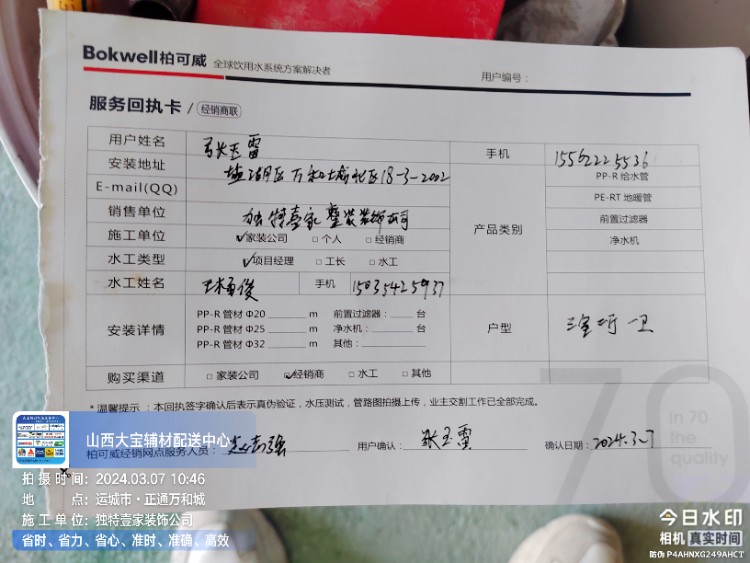 Bokwell柏可威 全球饮用水系统方案解决者
用户编号：
服务回执卡 / 经销商联
用户姓名 张玉雷 手机 15562225536
安装地址 盐湖区万和城北区18-3-2002
E-mail(QQ)
产品类别
PP-R 给水管
PE-RT 地暖管
前置过滤器
净水机
销售单位 独特壹家整装装饰公司
施工单位 ✓家装公司 □个人 □经销商
水工类型 ✓项目经理 □工长 □水工
水工姓名 手机 15035425937
安装详情
PP-R 管材 Φ20 ____ m 前置过滤器：____ 台
PP-R 管材 Φ25 ____ m 净水机：____ 台
PP-R 管材 Φ32 ____ m 其他：____
户型 三室二厅一卫
购买渠道 □家装公司 ✓经销商 □水工 □其他
*温馨提示：本回执签字确认后表示真伪验证，水压测试，管路图拍摄上传，业主交割工作已全部完成。
70
in 70
the
quality
柏可威经销网点服务人员： 用户确认：张玉雷 确认日期：2024.3.7
山西大宝辅材配送中心
拍摄时间：2024.03.07 10:46
地点：运城市·正通万和城
施工单位：独特壹家装饰公司
省时、省力、省心、准时、准确、高效
今日水印
相机 真实时间
防伪 P4AHNXG249AHCT